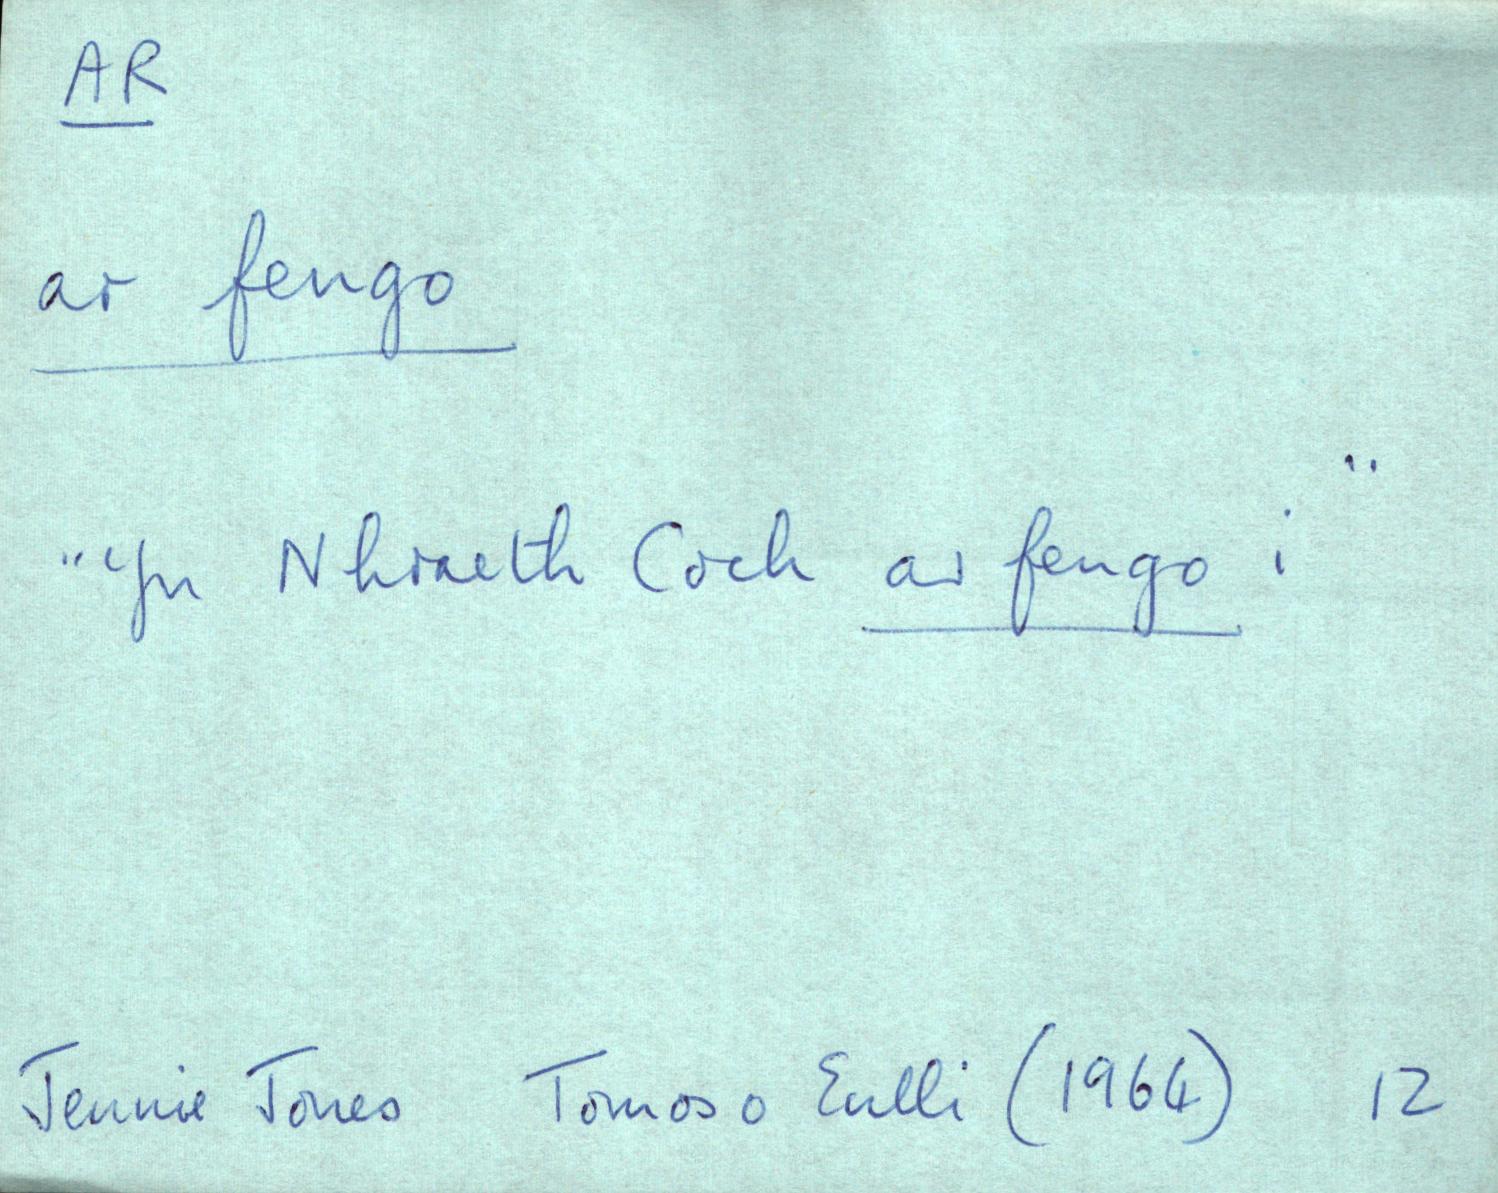 AR
ar fengo
"Yn Nhraeth Coch ar fengo i"
Jennie Jones Tomos o Enlli (1964) 12